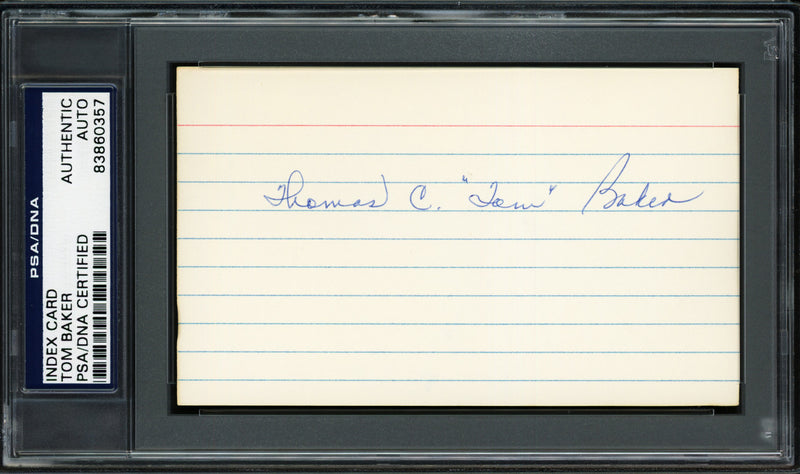 PSA/DNA
INDEX CARD
TOM BAKER
PSA/DNA CERTIFIED
AUTHENTIC
AUTO
83860357
Thomas C. "Tom" Baker